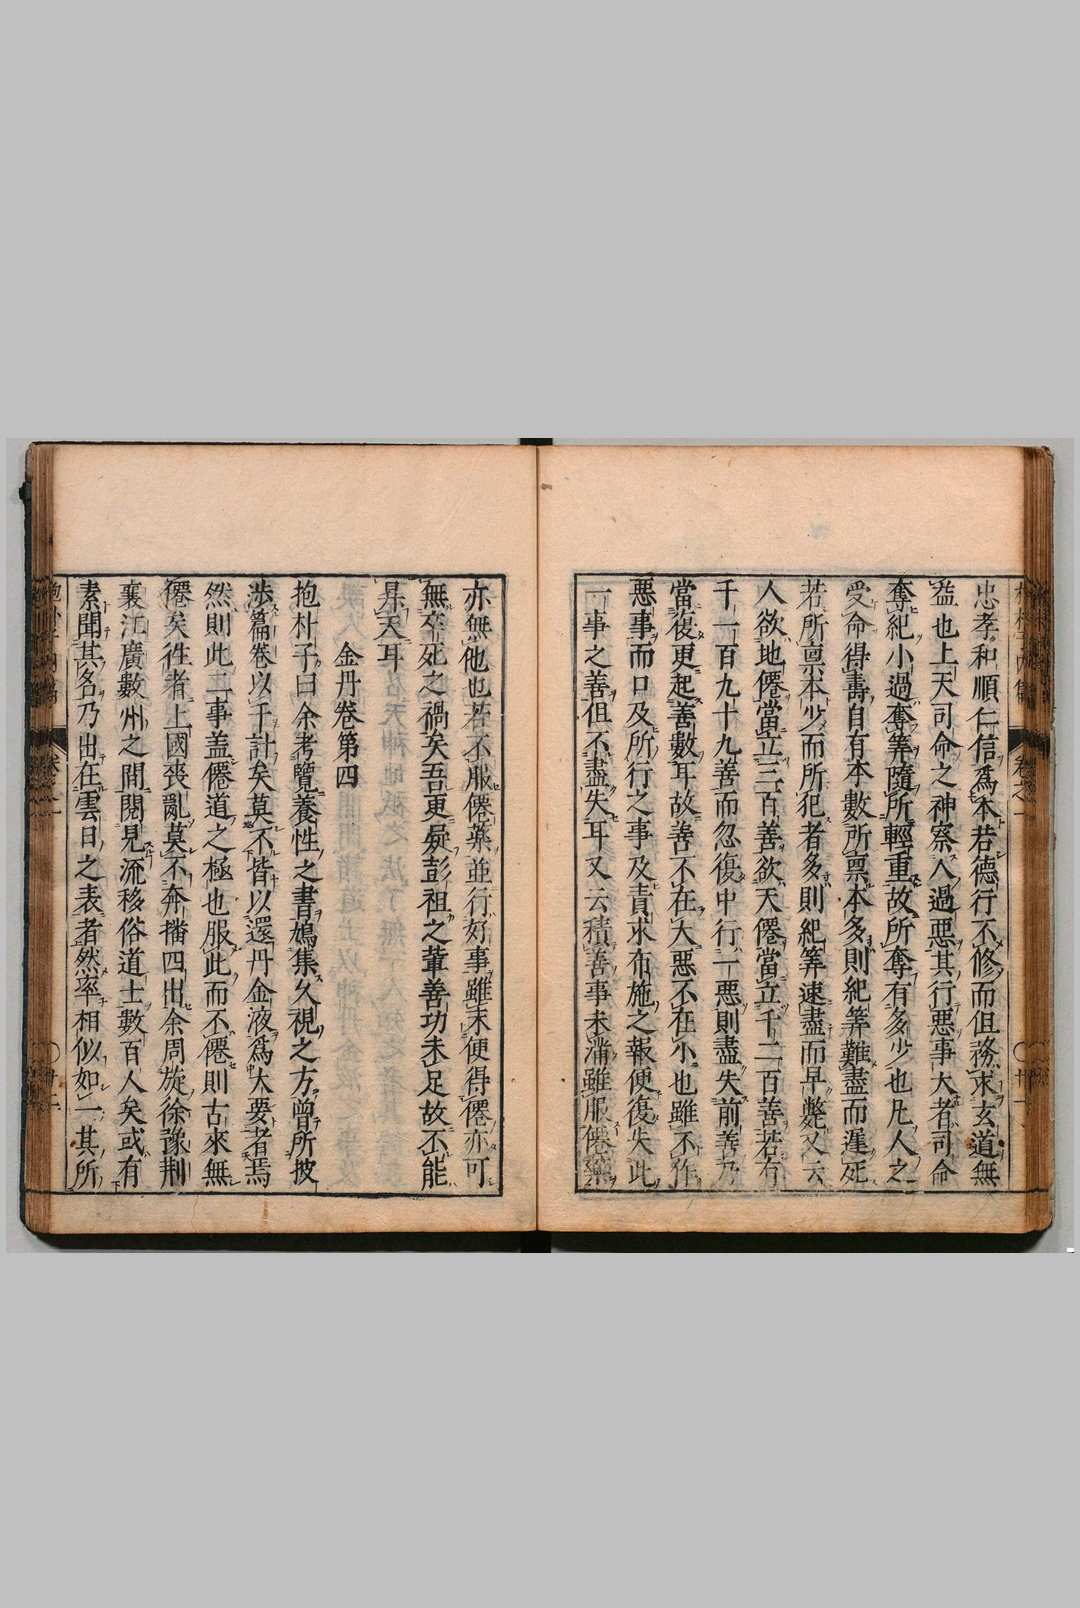 忠孝和順仁信爲本若德行不修而但務求玄道無
益也上天司命之神察人過惡其行惡事大者司命
奪紀小過奪筭隨所輕重故所奪有多少也凡人之
受命得壽自有本數所禀本多則紀筭難盡而遲死
若所禀本少而所犯者多則紀筭速盡而早斃又云
人欲地僊當立三百善欲天僊當立千二百善若有
千一百九十九善而忽復中行一惡則盡失前善乃
當復更起善數耳故善不在大惡不在小也雖不作
惡事而口及所行之事及責求布施之報便復失此
一事之善但不盡失耳又云積善事未滿雖服僊藥
亦無他也若不服僊藥並行好事雖未便得僊亦可
無卒死之禍矣吾更疑彭祖之輩善功未足故不能
昇天耳
金丹卷第四
抱朴子曰余考覽養性之書鳩集久視之方曾所披
涉篇卷以千計矣莫不皆以還丹金液爲大要者焉
然則此二事盖僊道之極也服此而不僊則古來無
僊矣徃者上國喪亂莫不奔播四出余周旋徐豫荆
襄江廣數州之間閱見流移俗道士數百人矣或有
素聞其名乃出在雲日之表者然率相似如一其所